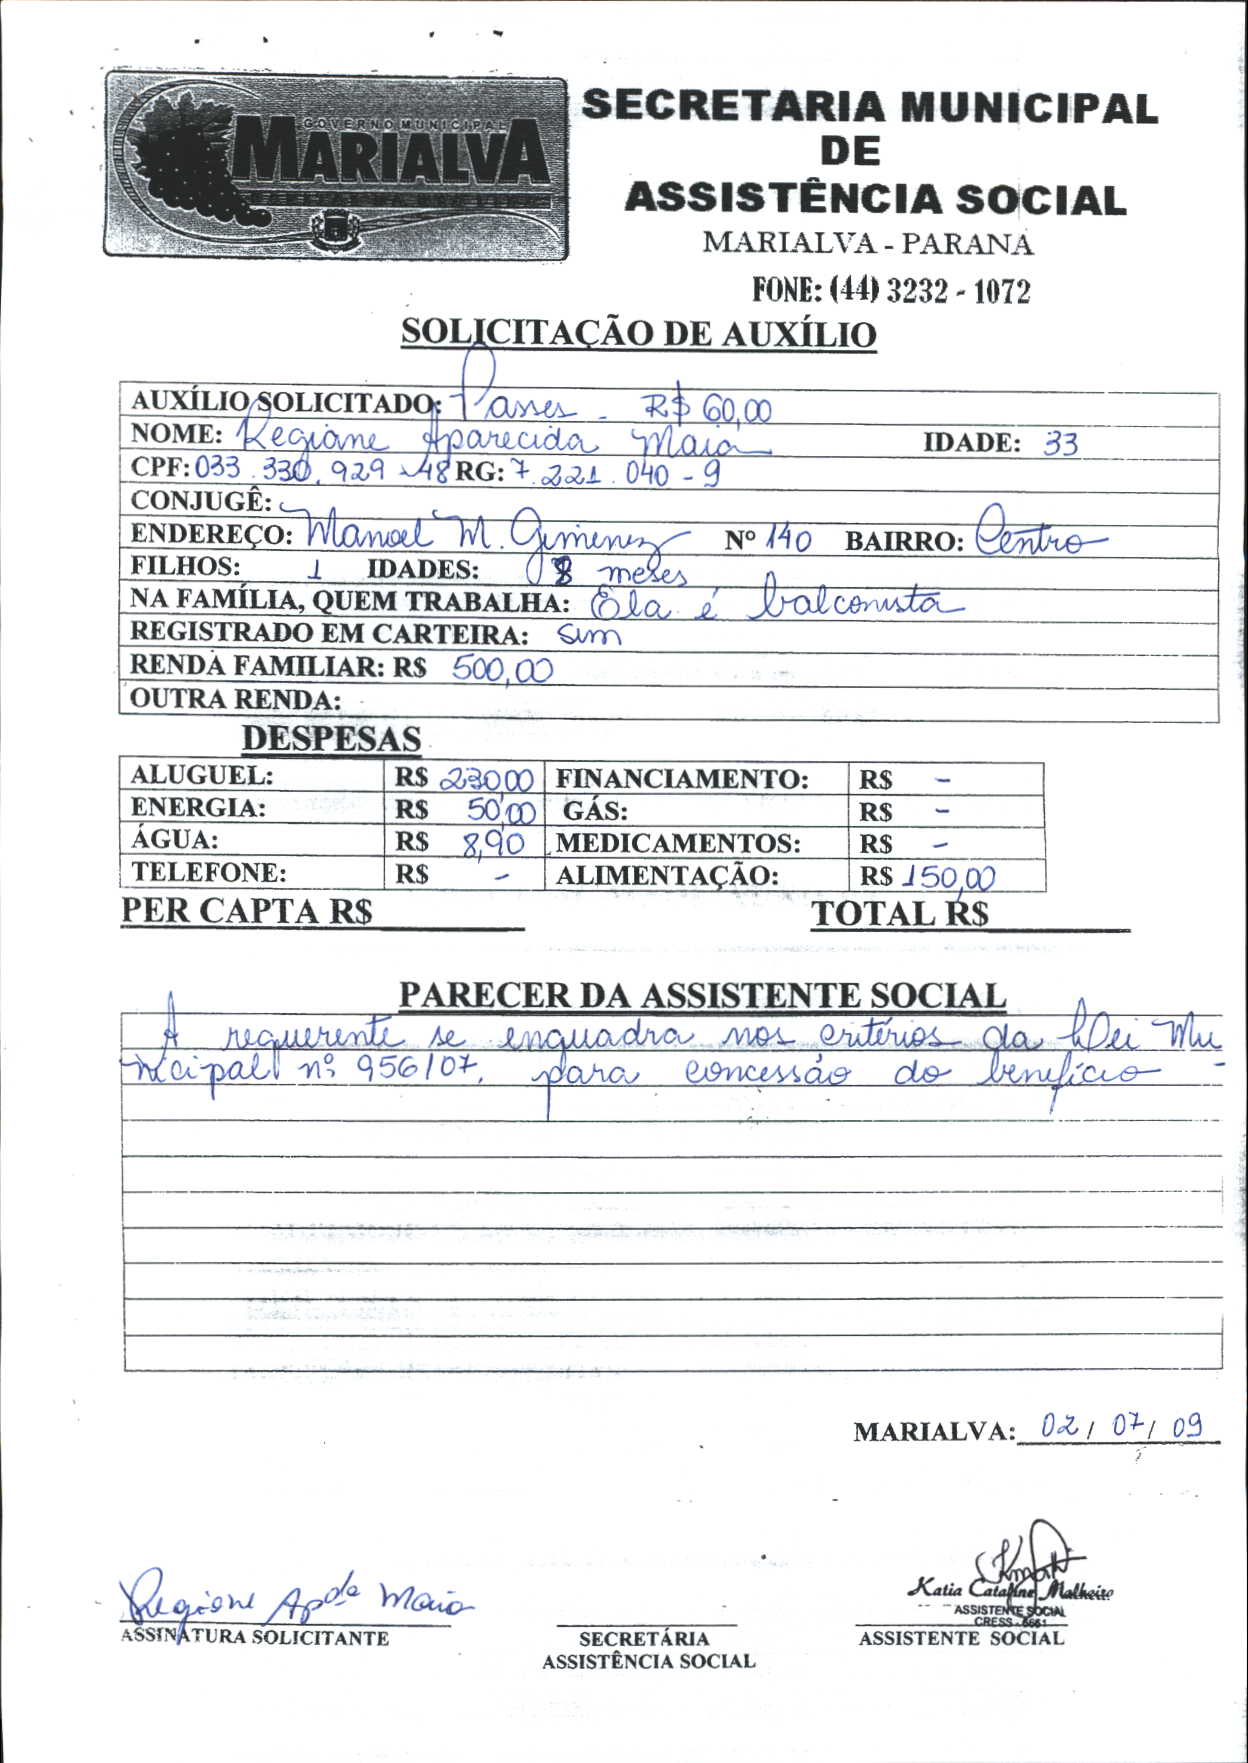 GOVERNO MUNICIPAL
MARIALVA
SECRETARIA MUNICIPAL
DE
ASSISTÊNCIA SOCIAL
MARIALVA - PARANÁ
FONE: (44) 3232 - 1072
SOLICITAÇÃO DE AUXÍLIO
AUXÍLIO SOLICITADO: Passes - R$ 60,00
NOME: Regiane Aparecida Maia IDADE: 33
CPF: 033.330.929-48 RG: 7.221.040-9
CONJUGÊ:
ENDEREÇO: Manoel M. Gimenez Nº 140 BAIRRO: Centro
FILHOS: 1 IDADES: 8 meses
NA FAMÍLIA, QUEM TRABALHA: Ela é balconista
REGISTRADO EM CARTEIRA: sim
RENDA FAMILIAR: R$ 500,00
OUTRA RENDA:
DESPESAS
ALUGUEL: R$ 230,00 FINANCIAMENTO: R$ -
ENERGIA: R$ 50,00 GÁS: R$ -
ÁGUA: R$ 8,90 MEDICAMENTOS: R$ -
TELEFONE: R$ - ALIMENTAÇÃO: R$ 150,00
PER CAPTA R$ TOTAL R$
PARECER DA ASSISTENTE SOCIAL
A requerente se enquadra nos critérios da Lei Mu
nicipal nº 956/07, para concessão do benefício -
MARIALVA: 02 / 07 / 09
Regiane Apda Maia
Katia Malheiro
ASSISTENTE SOCIAL
CRESS
ASSINATURA SOLICITANTE SECRETÁRIA ASSISTENTE SOCIAL
ASSISTÊNCIA SOCIAL